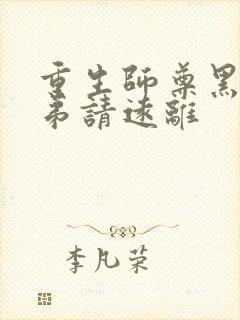 重生師尊黑
弟請遠離
李凡荣